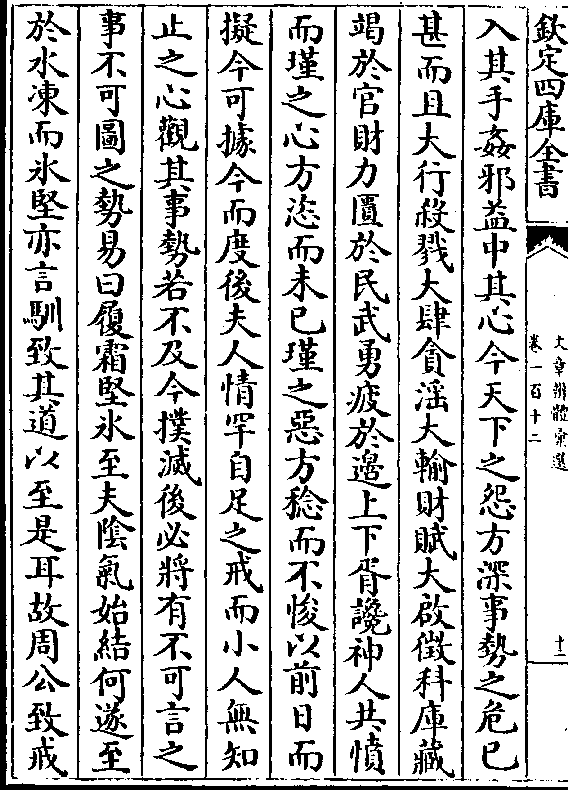 欽定四庫全書
文章辨體彙選
卷一百十二
十一
入其手姦邪益中其心今天下之怨方深事勢之危已
甚而且大行殺戮大肆貪滛大輸財賦大啟徴科庫藏
竭於官財力匱於民武勇疲於邉上下胥讒神人共憤
而瑾之心方恣而未已瑾之惡方稔而不悛以前日而
擬今可據今而度後夫人情罕自足之戒而小人無知
止之心觀其事勢若不及今撲滅後必將有不可言之
事不可圖之勢易曰履霜堅氷至夫陰氣始結何遂至
於水凍而氷堅亦言馴致其道以至是耳故周公致戒